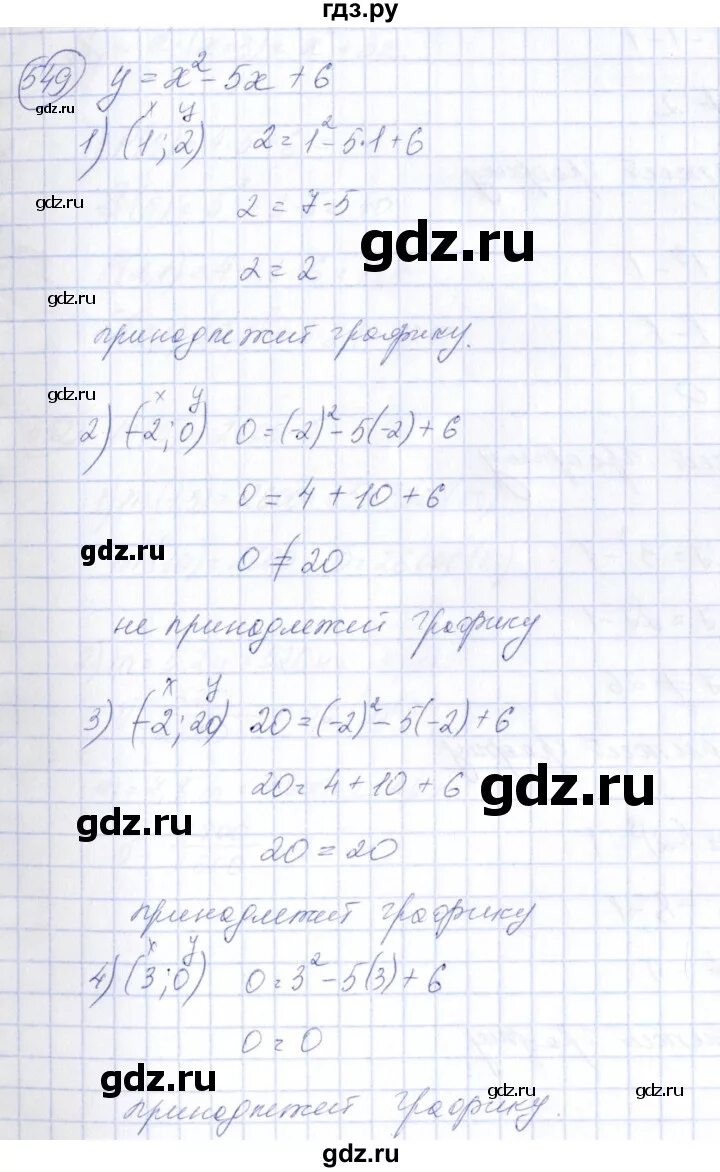 гдз.ру
549 y = x² - 5x + 6
gdz.ru
x y
1) (1; 2) 2 = 1² - 5·1 + 6
gdz.ru
2 = 7 - 5
gdz.ru
2 = 2
gdz.ru
принадлежит графику.
gdz.ru
x y
2) (-2; 0) 0 = (-2)² - 5(-2) + 6
0 = 4 + 10 + 6
gdz.ru
0 ≠ 20
не принадлежит графику
x y
3) (-2; 20) 20 = (-2)² - 5(-2) + 6
20 = 4 + 10 + 6
gdz.ru
gdz.ru
20 = 20
принадлежит графику
x y
4) (3; 0) 0 = 3² - 5(3) + 6
0 = 0
gdz.ru
gdz.ru
gdz.ru
принадлежит графику.
gdz.ru